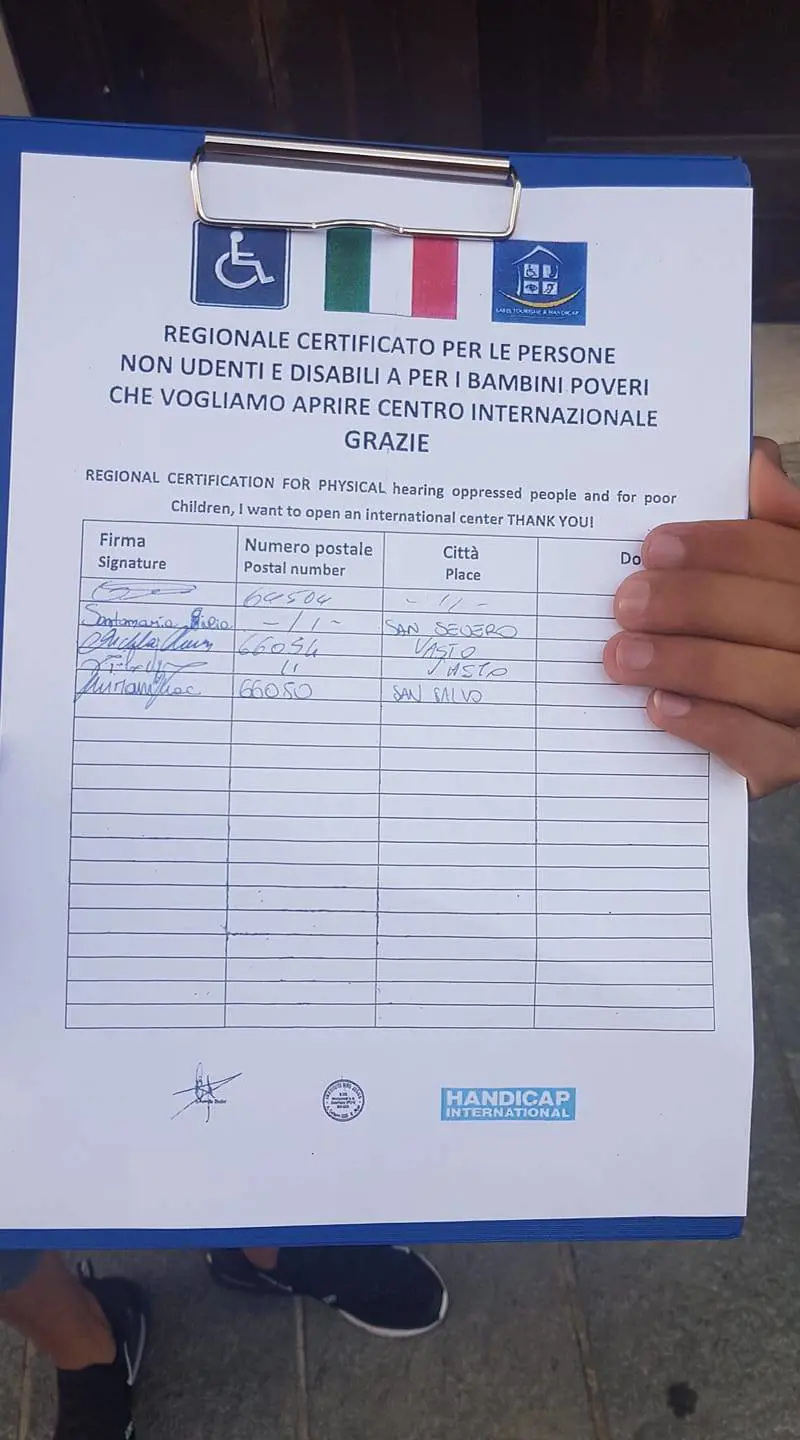 LABEL TOURISME & HANDICAP
REGIONALE CERTIFICATO PER LE PERSONE
NON UDENTI E DISABILI A PER I BAMBINI POVERI
CHE VOGLIAMO APRIRE CENTRO INTERNAZIONALE
GRAZIE
REGIONAL CERTIFICATION FOR PHYSICAL hearing oppressed people and for poor
Children, I want to open an international center THANK YOU!
Firma Numero postale Città Do
Signature Postal number Place
64504 - 11 -
Santamaria - 11 - SAN SEVERO
66054 VASTO
11 VASTO
66050 SAN SALVO
HANDICAP
INTERNATIONAL